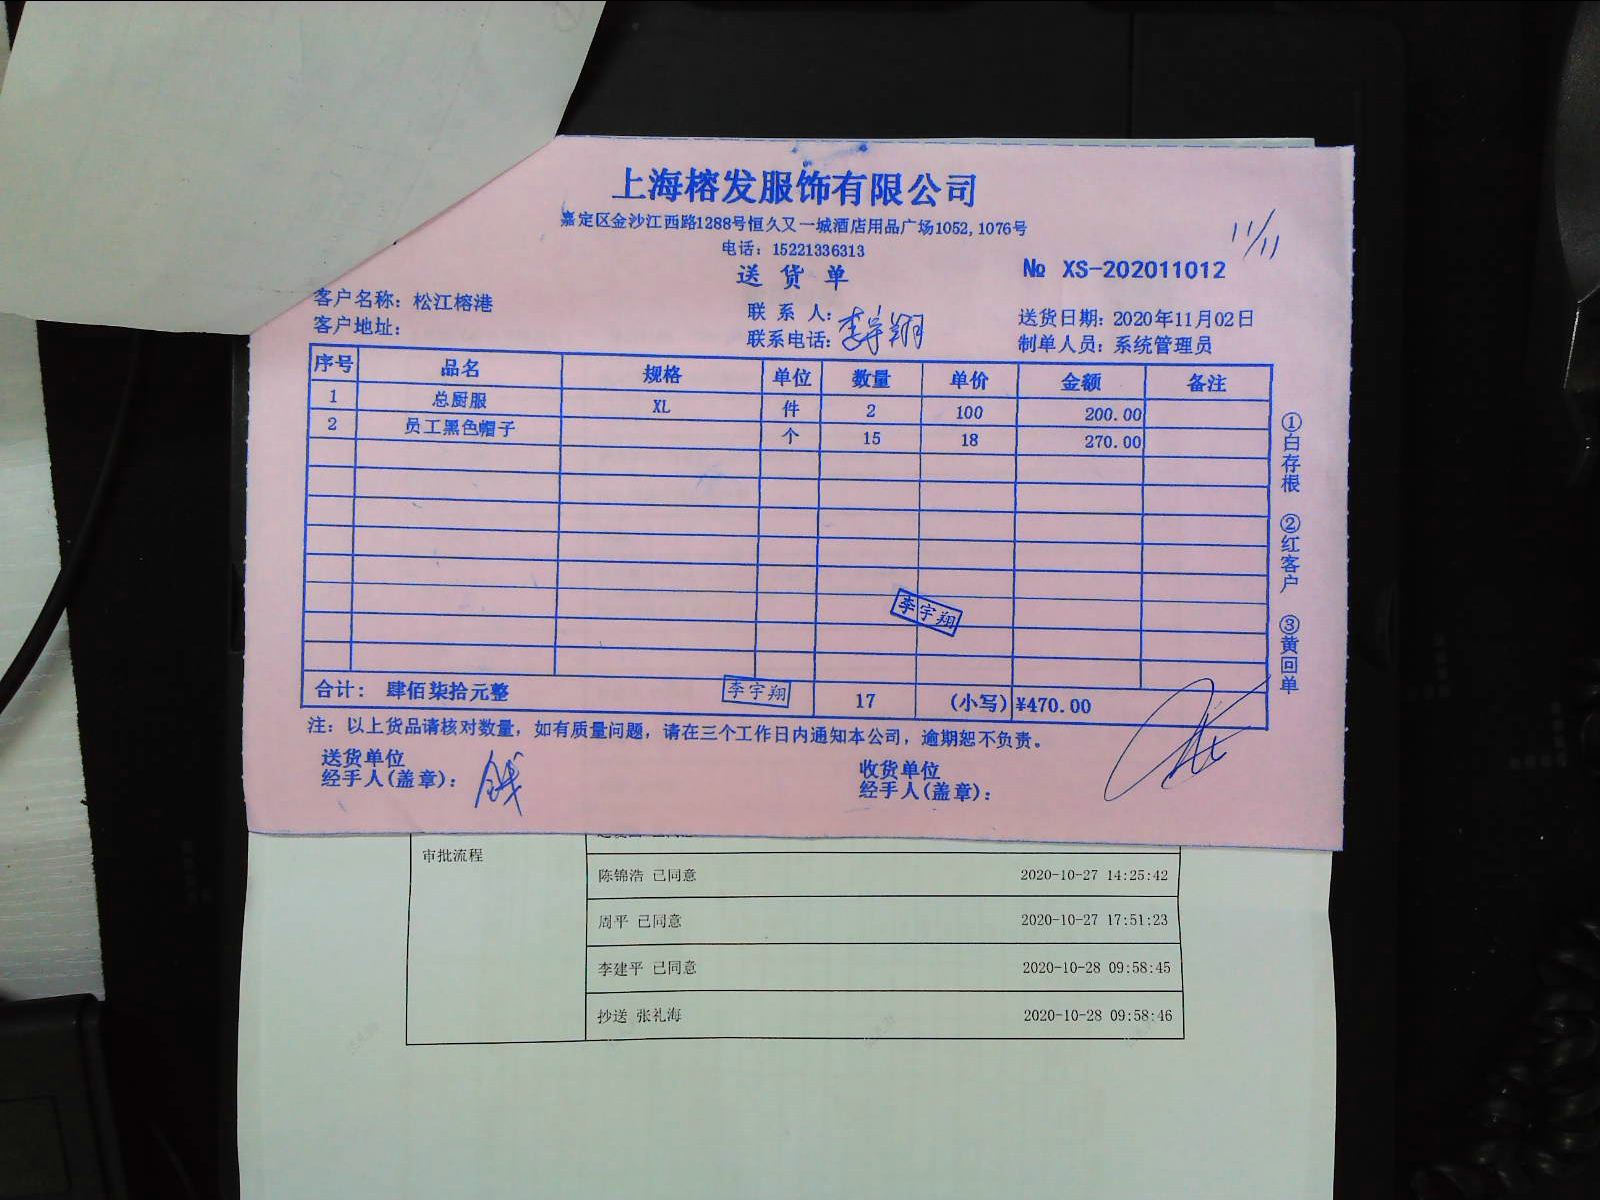 上海榕发服饰有限公司
嘉定区金沙江西路1288号恒久又一城酒店用品广场1052,1076号
电话：15221336313
11/11
送货单
№ XS-202011012
客户名称：松江榕港
联系人：
送货日期：2020年11月02日
客户地址：
联系电话：李宇翔
制单人员：系统管理员
序号 品名 规格 单位 数量 单价 金额 备注
1 总厨服 XL 件 2 100 200.00
2 员工黑色帽子 个 15 18 270.00
①白存根 ②红客户 ③黄回单
李宇翔
合计：肆佰柒拾元整 李宇翔 17 (小写) ¥470.00
注：以上货品请核对数量，如有质量问题，请在三个工作日内通知本公司，逾期恕不负责。
送货单位
经手人(盖章)：钱
收货单位
经手人(盖章)：
审批流程
陈锦浩 已同意 2020-10-27 14:25:42
周平 已同意 2020-10-27 17:51:23
李建平 已同意 2020-10-28 09:58:45
抄送 张礼海 2020-10-28 09:58:46